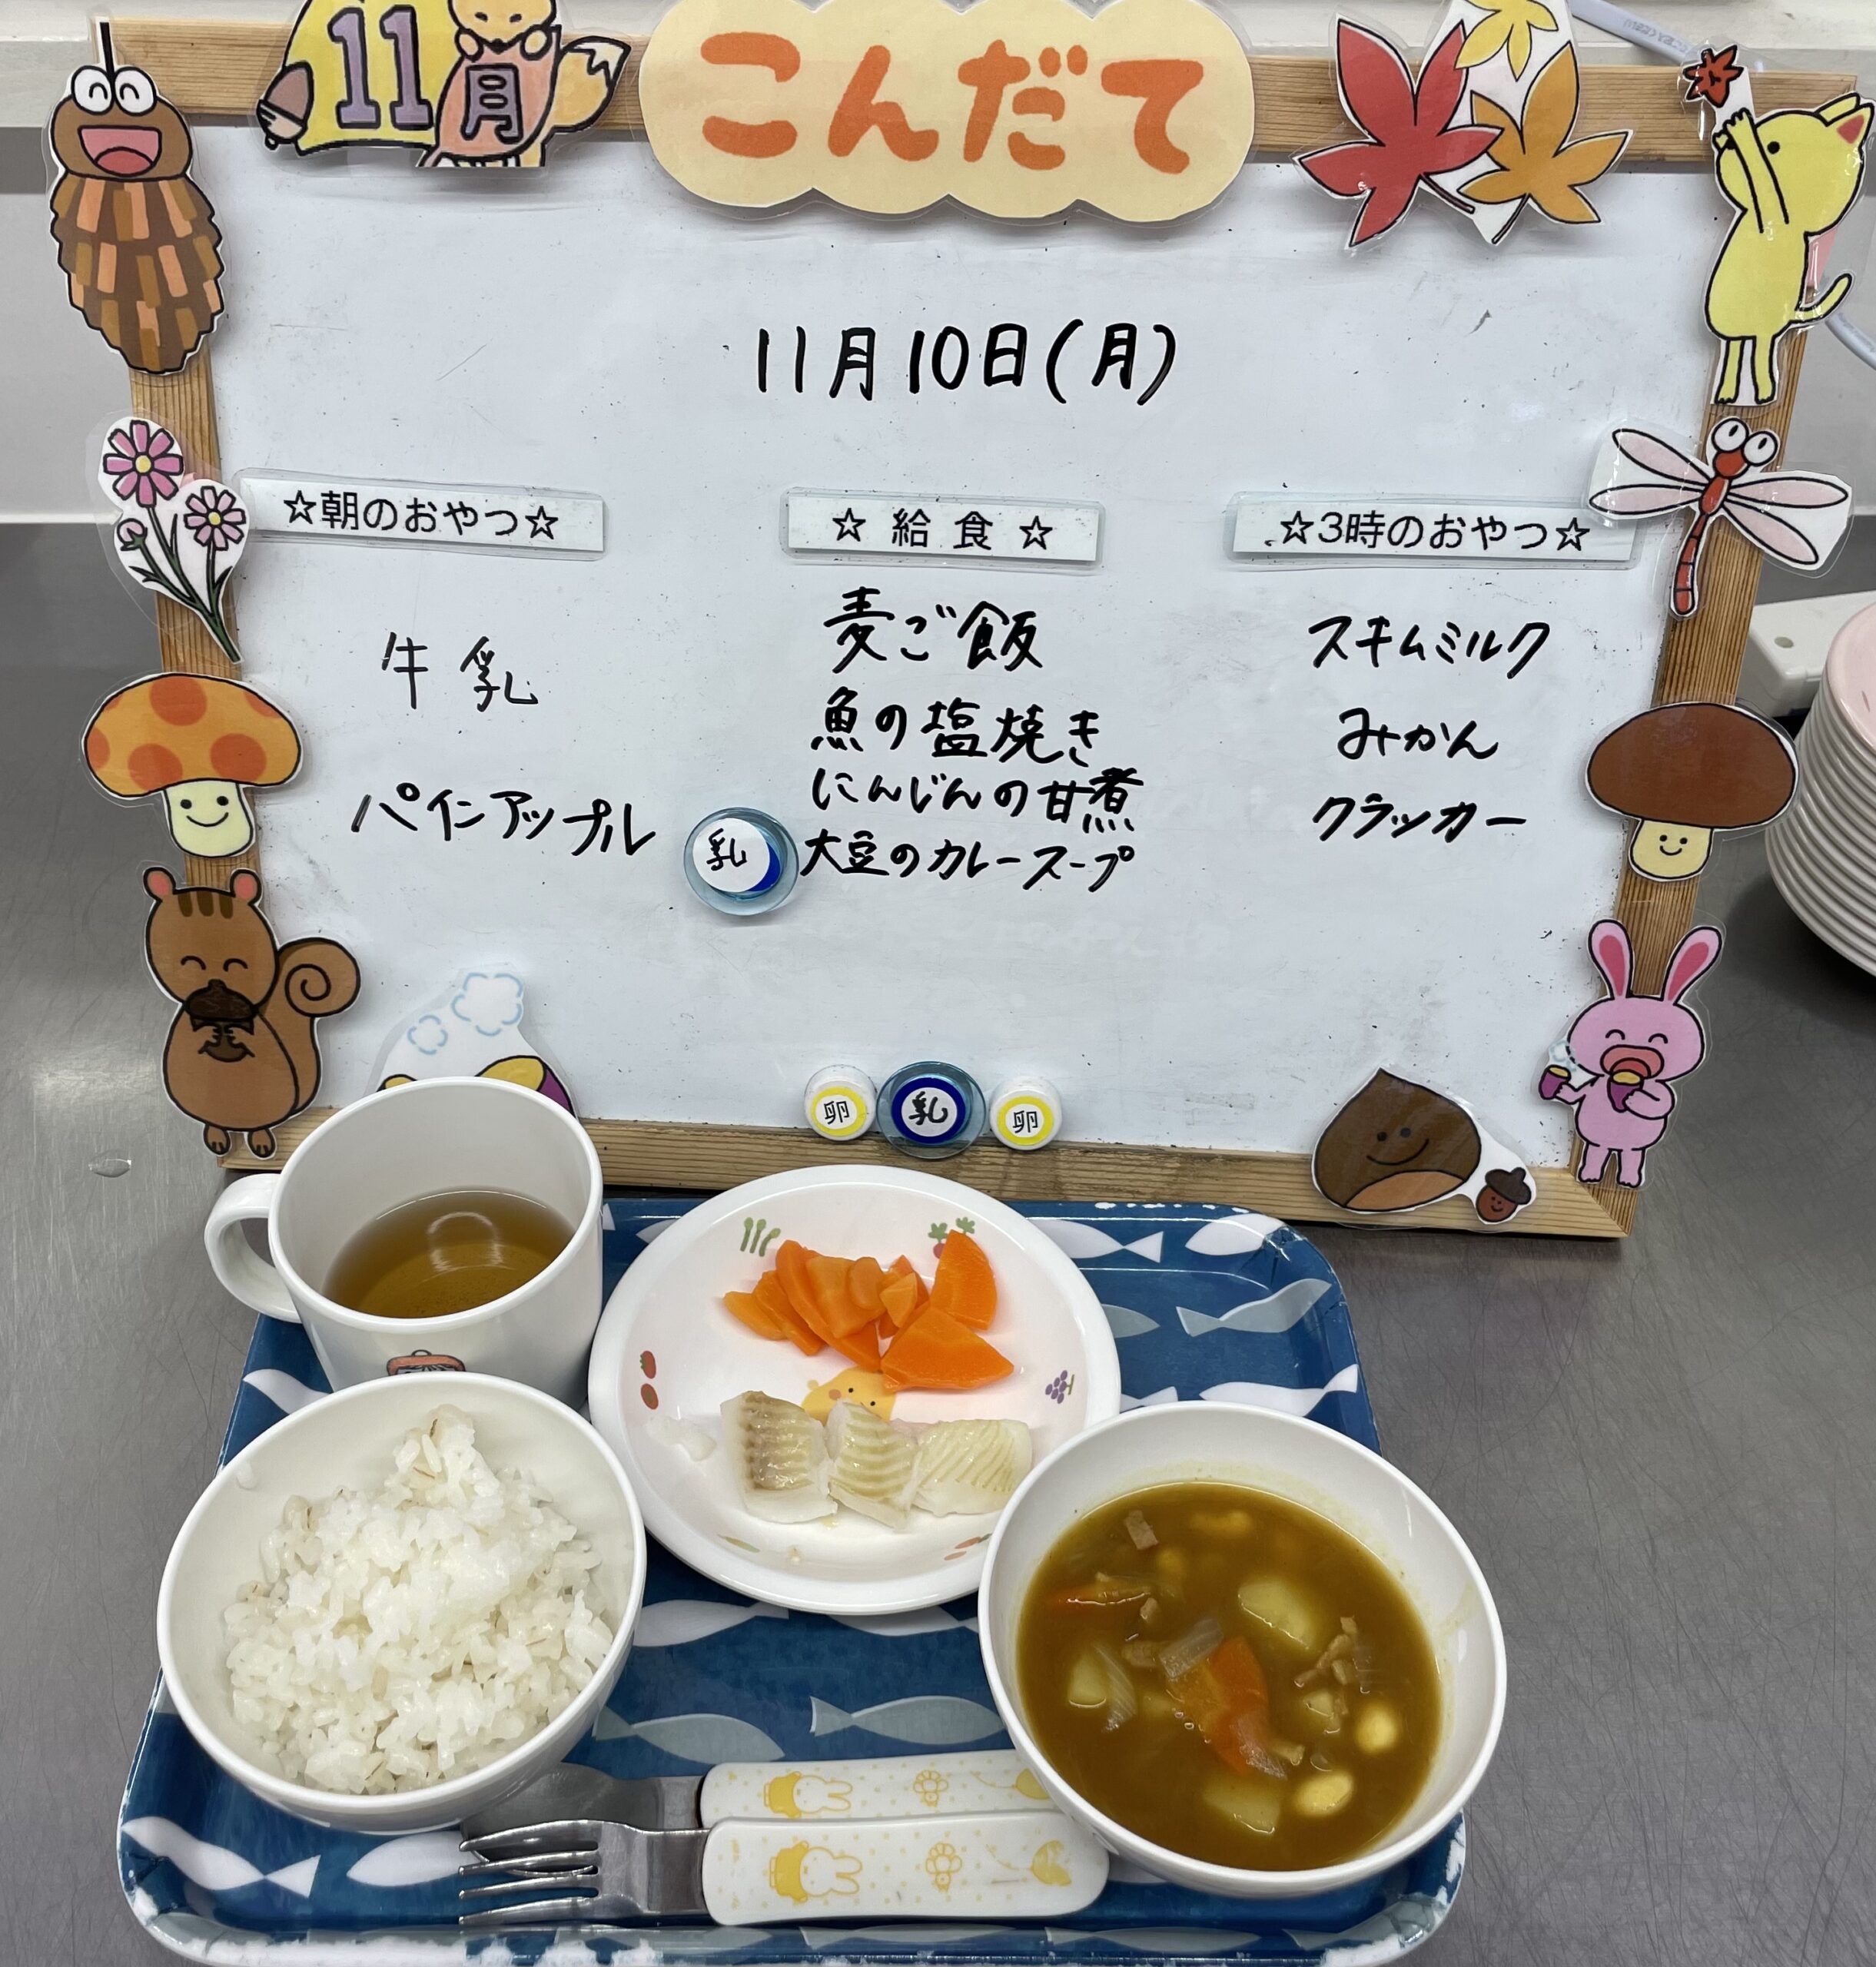 11月
こんだて
11月10日(月)
☆朝のおやつ☆
牛乳
パインアップル
☆給食☆
麦ご飯
魚の塩焼き
にんじんの甘煮
乳 大豆のカレースープ
☆3時のおやつ☆
スキムミルク
みかん
クラッカー
卵 乳 卵